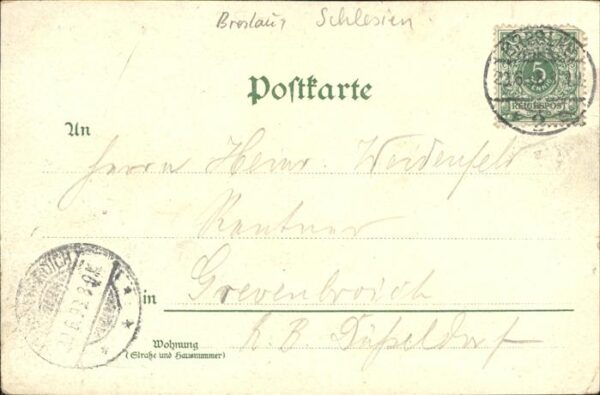 Breslau, Schlesien.
BRESLAU
5
REICHSPOST
2
Postkarte
An
Herrn Heinr. Weidenfeld
Rentner
in Grevenbroich
R. B. Düsseldorf
Wohnung
(Straße und Hausnummer)